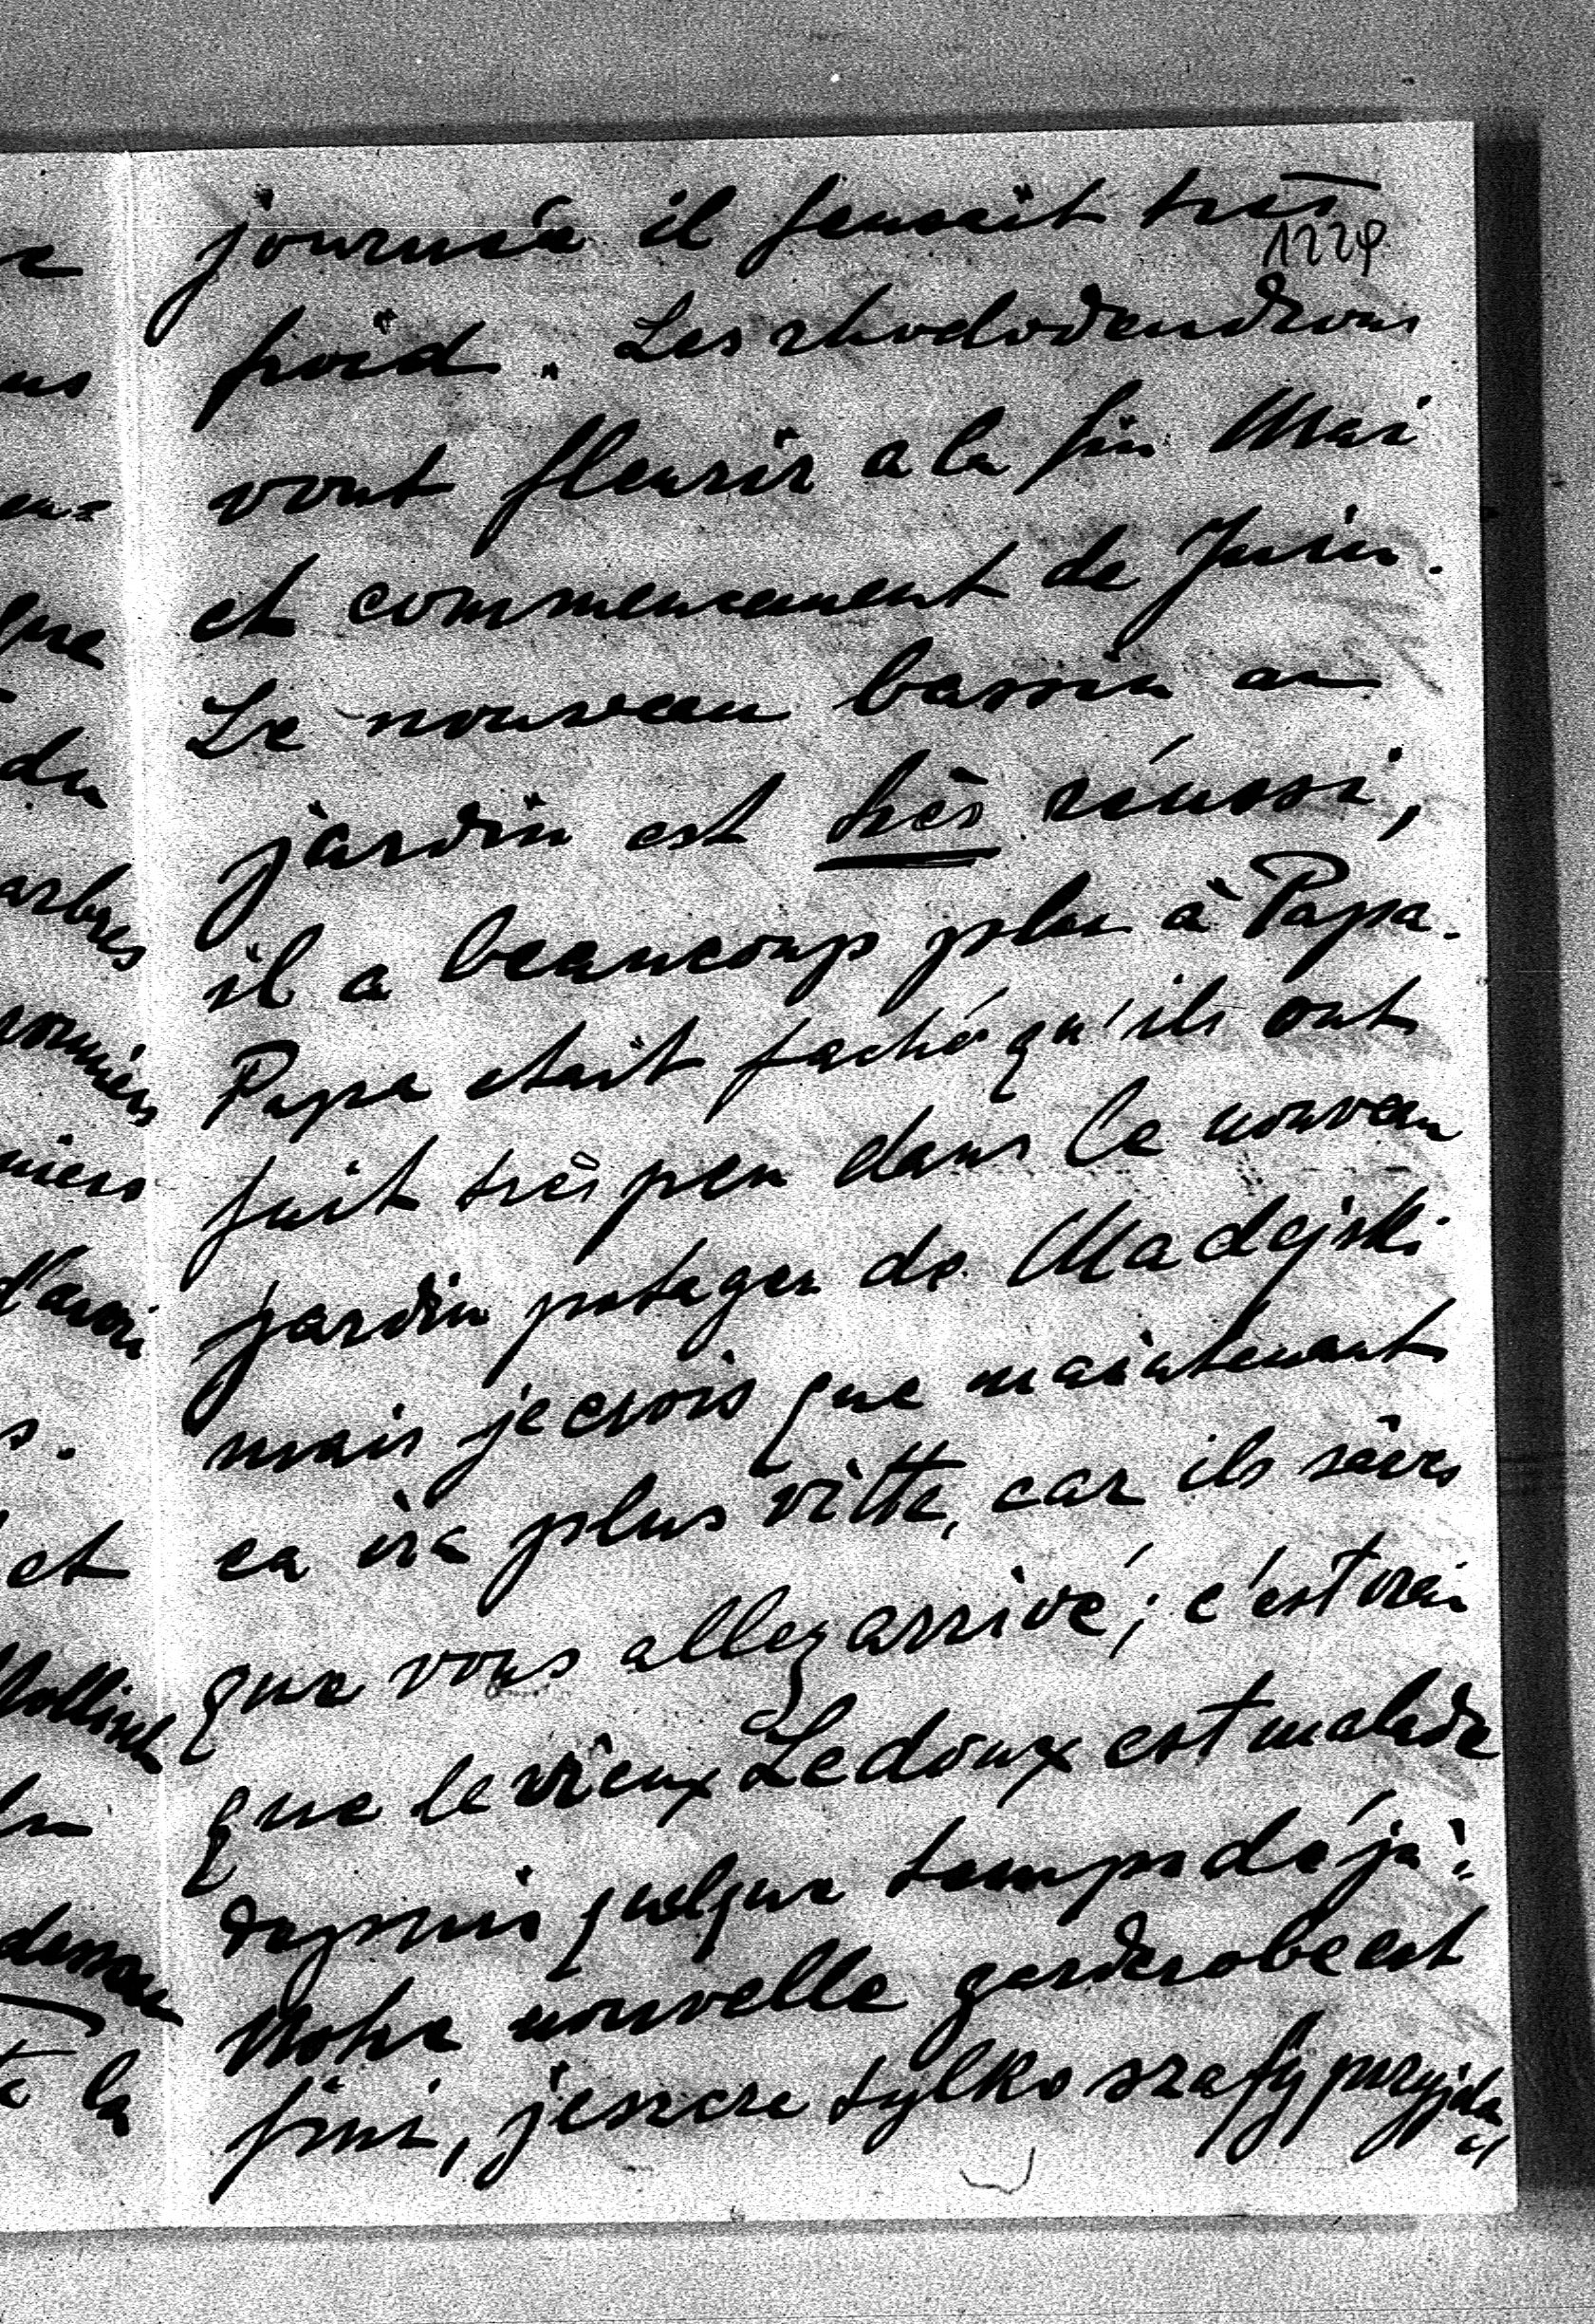 journée il faisait très
1229
froid. Les rhododendrons
vont fleurir a la fin Mai
et commencement de Juin.
Le nouveau bassin au
jardin est très réussi,
il a beaucoup plu à Papa.
Papa etait faché qu'ils ont
fait très peu dans le nouveau
jardin potager de Madejski
mais je crois que maintenant
ca ira plus vitte, car ils
que vous allez arrivé; c'est vrai
que le vieux Ledoux est malade
depuis quelque temps déjà.
Notre nouvelle garderobe est
fini, jeszcze tylko szafy przyjdą
arbres
que
du
et
la